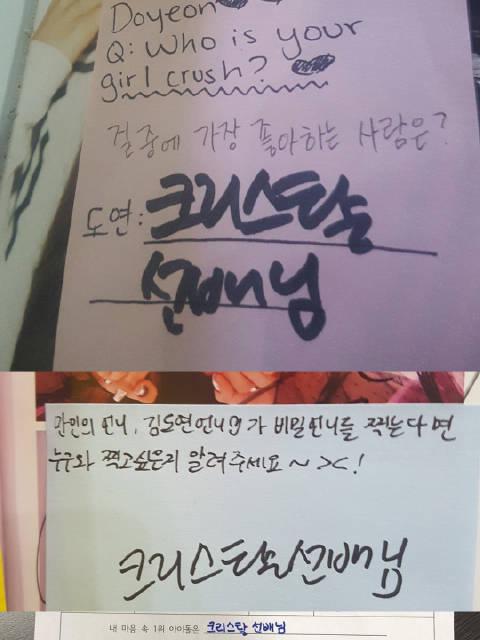 Doyeon
Q: Who is your
girl crush?
걸중에 가장 좋아하는 사람은?
도연: 크리스탈
선배님
만인의 언니, 김도연언니가 비밀언니를 찍는다면
누구와 찍고싶은지 알려주세요~ ><!
크리스탈선배님
내 마음 속 1위 아이돌은 크리스탈 선배님